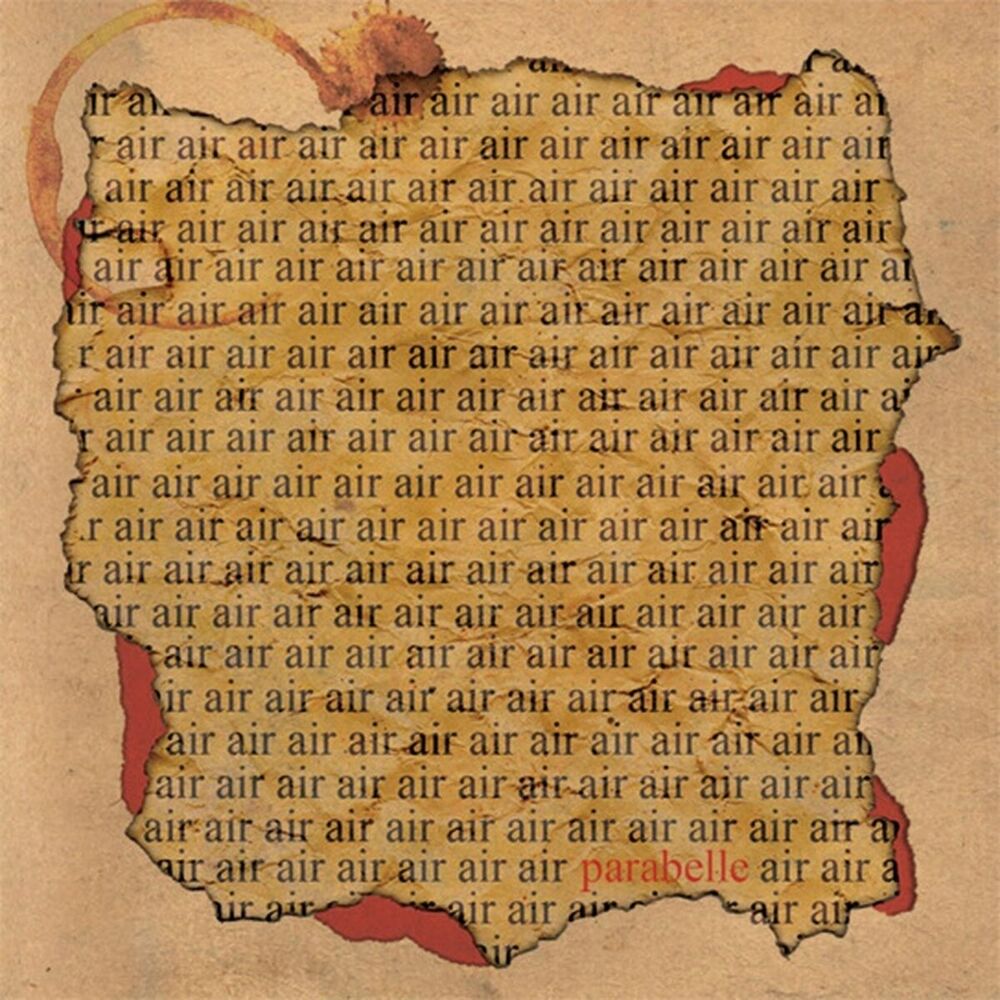 air r ai
ir ai air air air air air air air air ai
r air air air air air air air air air air air air air
air air air air air air air air air air air air air
ir air air air air air air air air air air air air air
air air air air air air air air air air air air air ai
ir air air air air air air air air air air air air air air
r air air air air air air air air air air air air air air
air air air air air air air air air air air air air ai
r air air air air air air air air air air air air air
air air air air air air air air air air air air air a
r air air air air air air air air air air air air air
ir air air air air air air air air air air air air air
air air air air air air air air air air air air air
air air air air air air air air air air air air
ir air air air air air air air air air air air
air air air air air air air air air air air ai
air air air air air air air air air air air air
air air air air air air air air air air air air ai
air air air air air air air parabelle air air a
air air air air air r air air
air